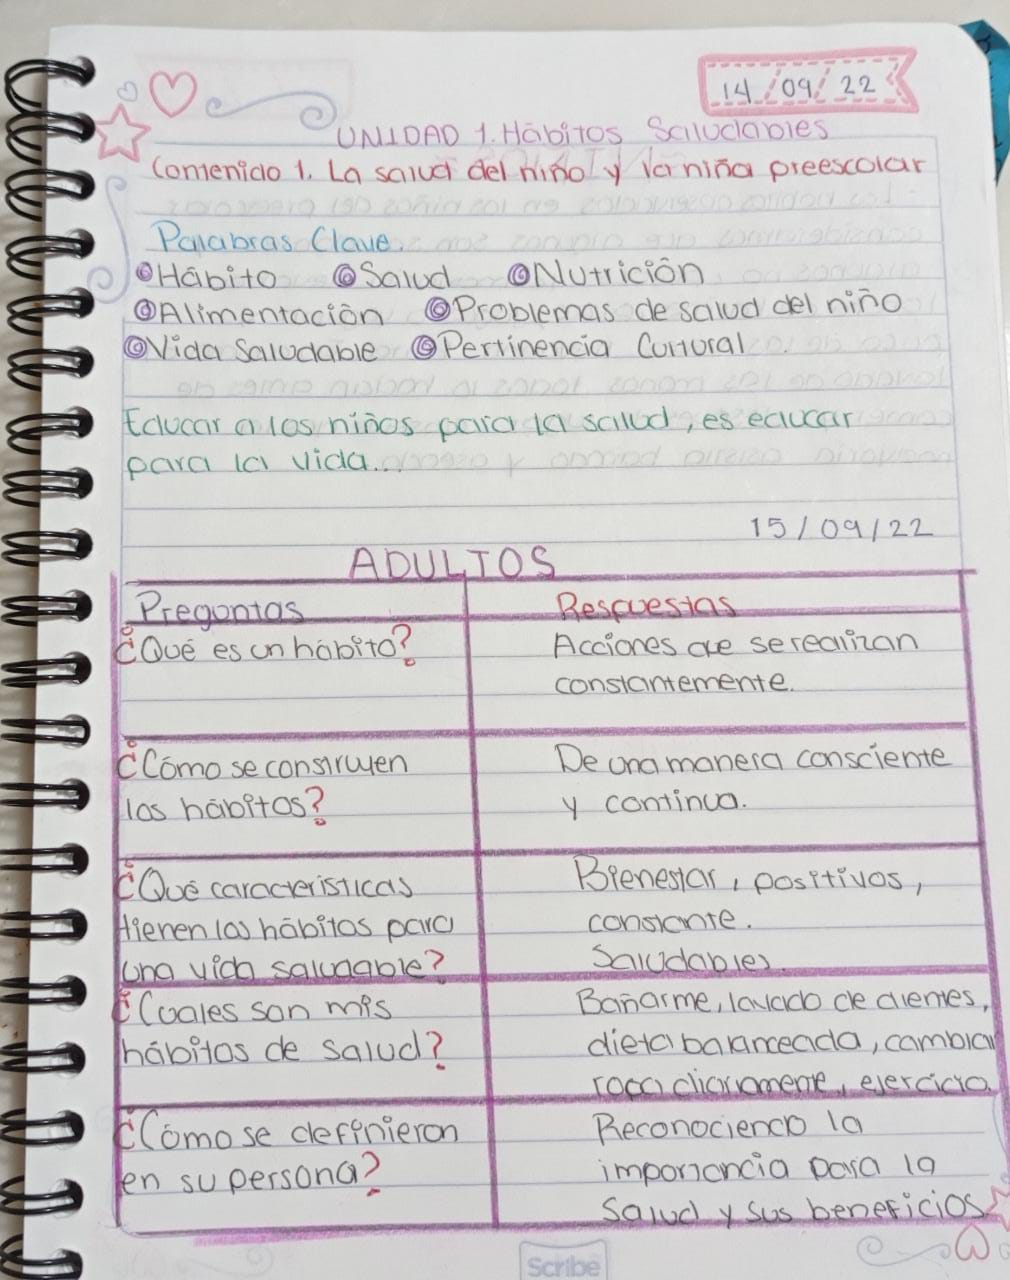 14/09/22
UNIDAD 1. Hábitos Saludables
Contenido 1. La salud del niño y la niña preescolar
Palabras Clave.
Hábito Salud Nutrición
Alimentación Problemas de salud del niño
Vida Saludable Pertinencia Cultural
Educar a los niños para la salud, es educar
para la vida.
15/09/22
ADULTOS
Preguntas Respuestas
¿Qué es un hábito? Acciones que se realizan
constantemente.
¿Cómo se construyen De una manera consciente
los hábitos? y continua.
¿Qué características Bienestar, positivos,
tienen los hábitos para constante.
una vida saludable? Saludables.
¿Cuales son mis Bañarme, lavado de dientes,
hábitos de salud? dieta balanceada, cambiar
ropa diariamente, ejercicio.
¿Cómo se definieron Reconociendo la
en su persona? importancia para la
salud y sus beneficios.
Scribe